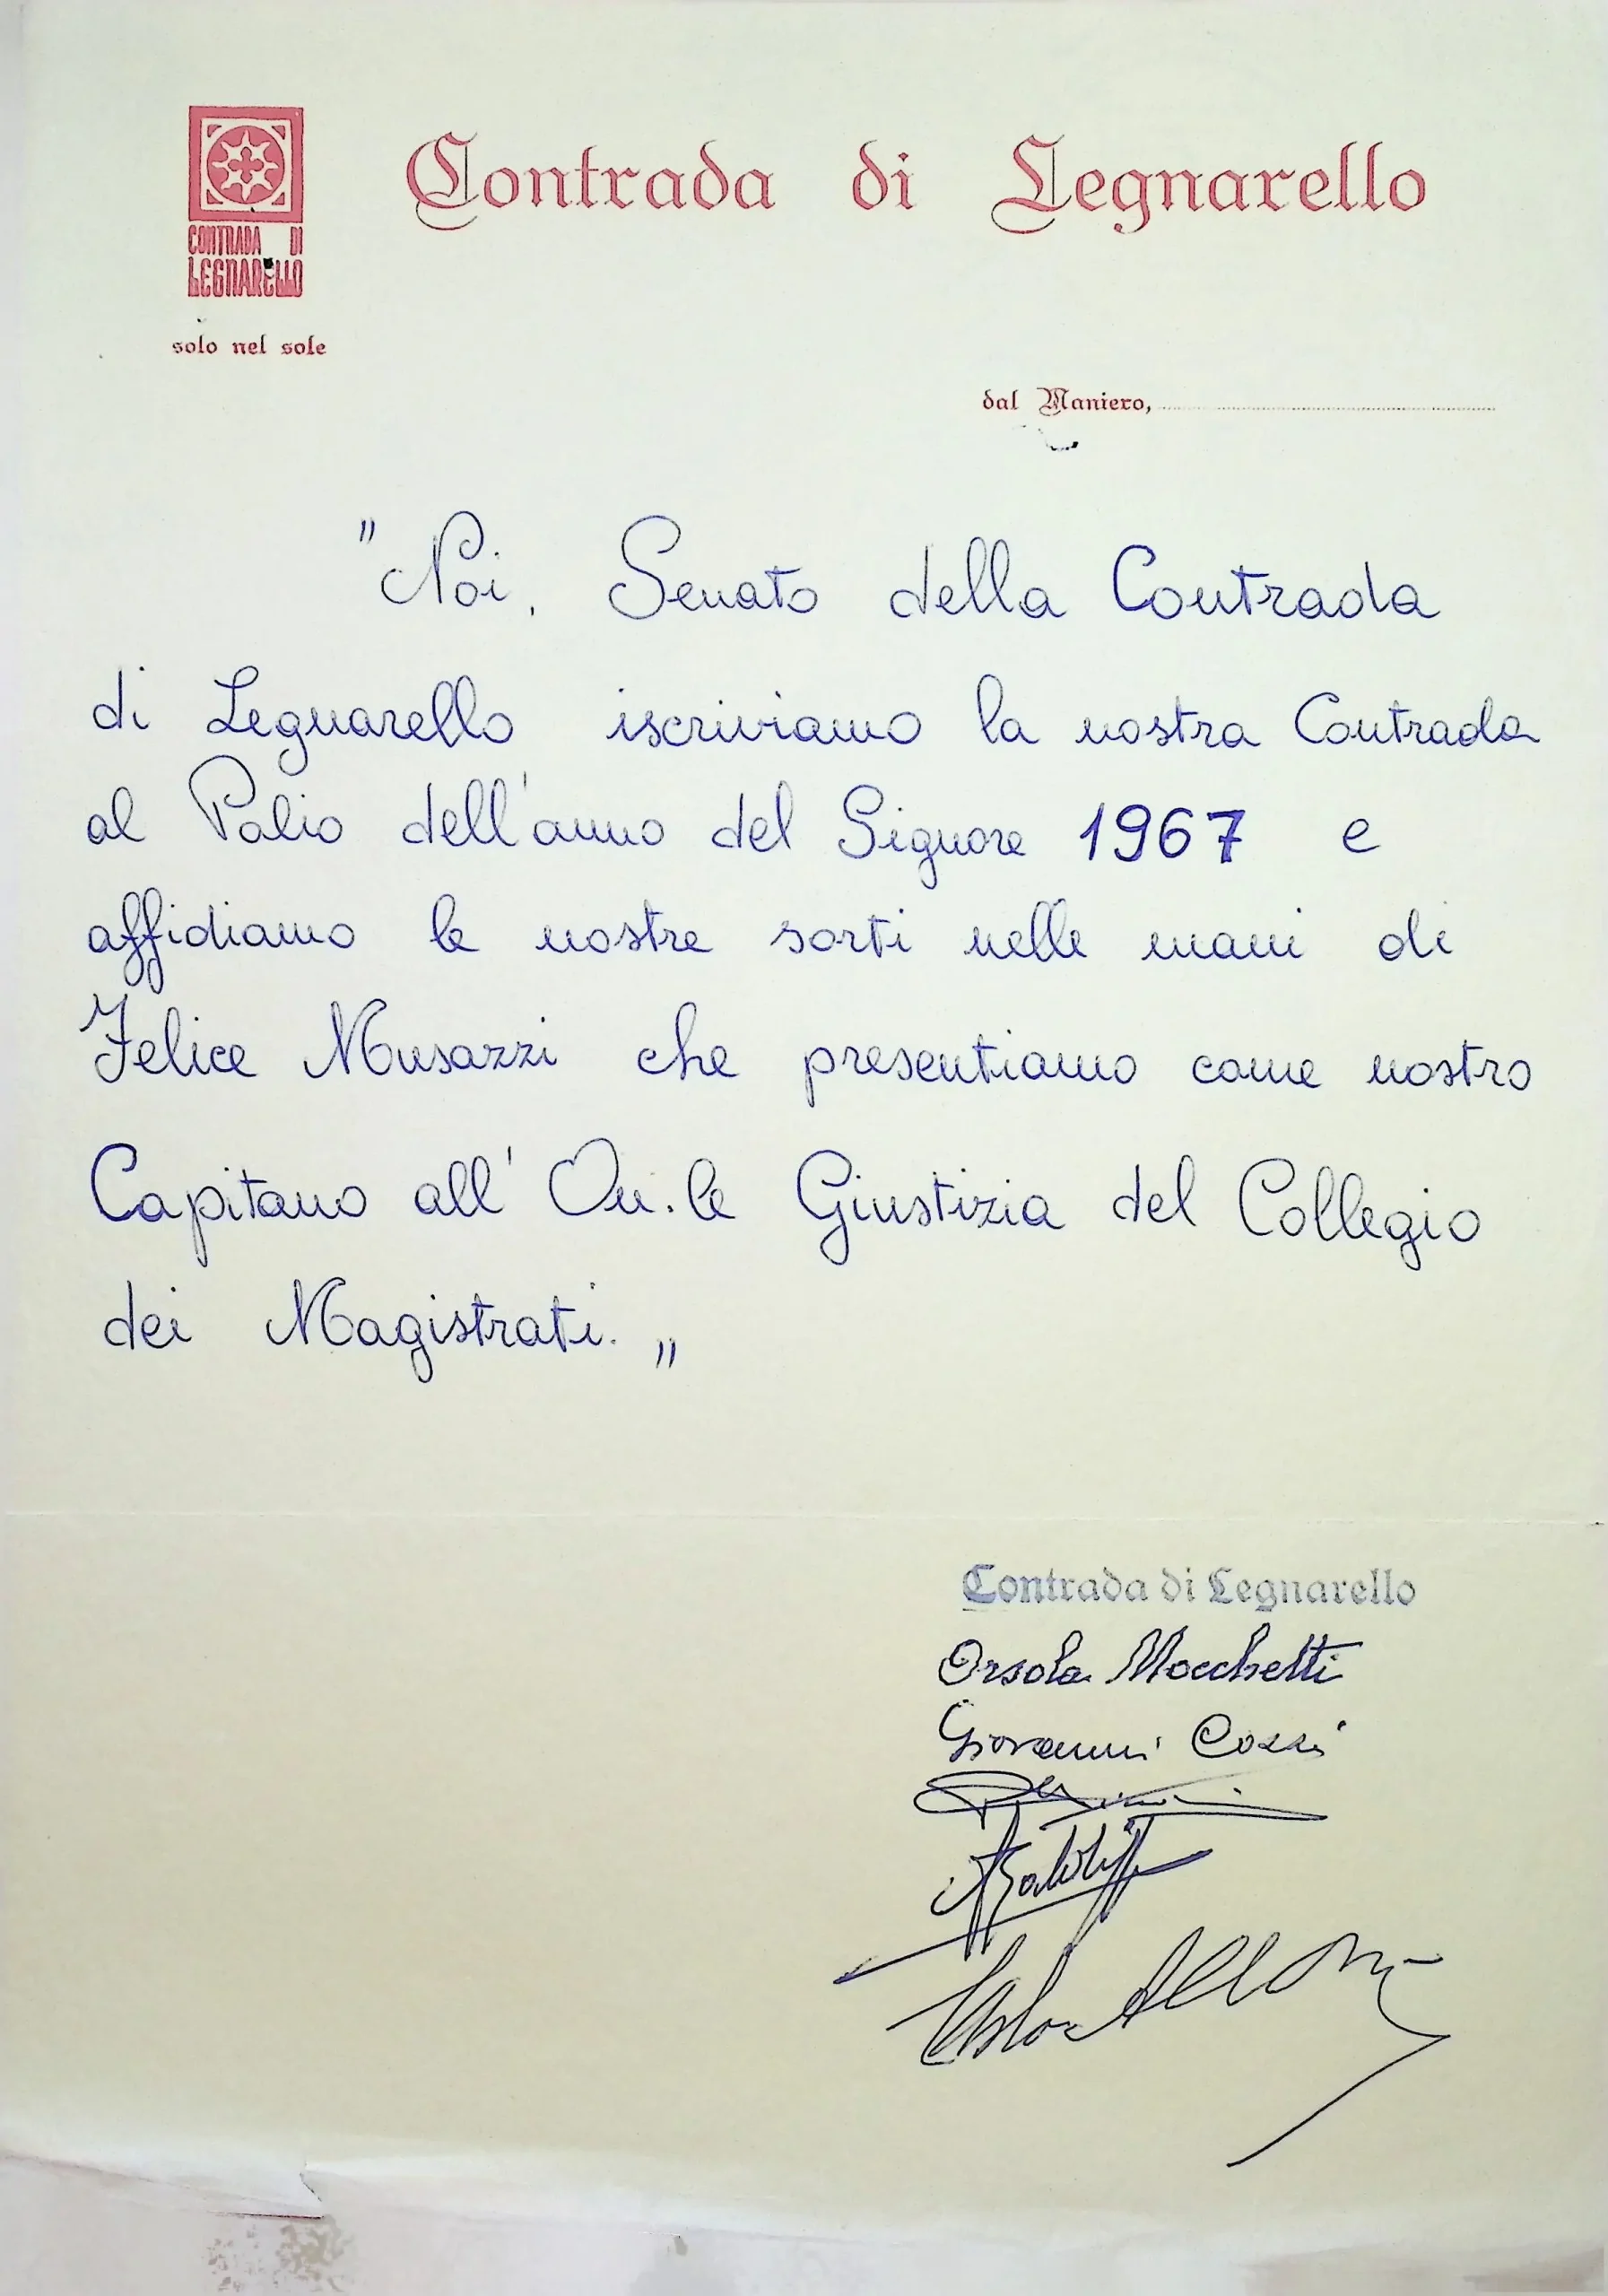 Contrada di Legnarello
CONTRADA DI
LEGNARELLO
solo nel sole
dal Maniero,
"Noi, Senato della Contrada
di Legnarello iscriviamo la nostra Contrada
al Palio dell'anno del Signore 1967 e
affidiamo le nostre sorti nelle mani di
Felice Musazzi che presentiamo come nostro
Capitano all'On.le Giustizia del Collegio
dei Magistrati."
Contrada di Legnarello
Orsola Mocchetti
Giovanni Cozzi